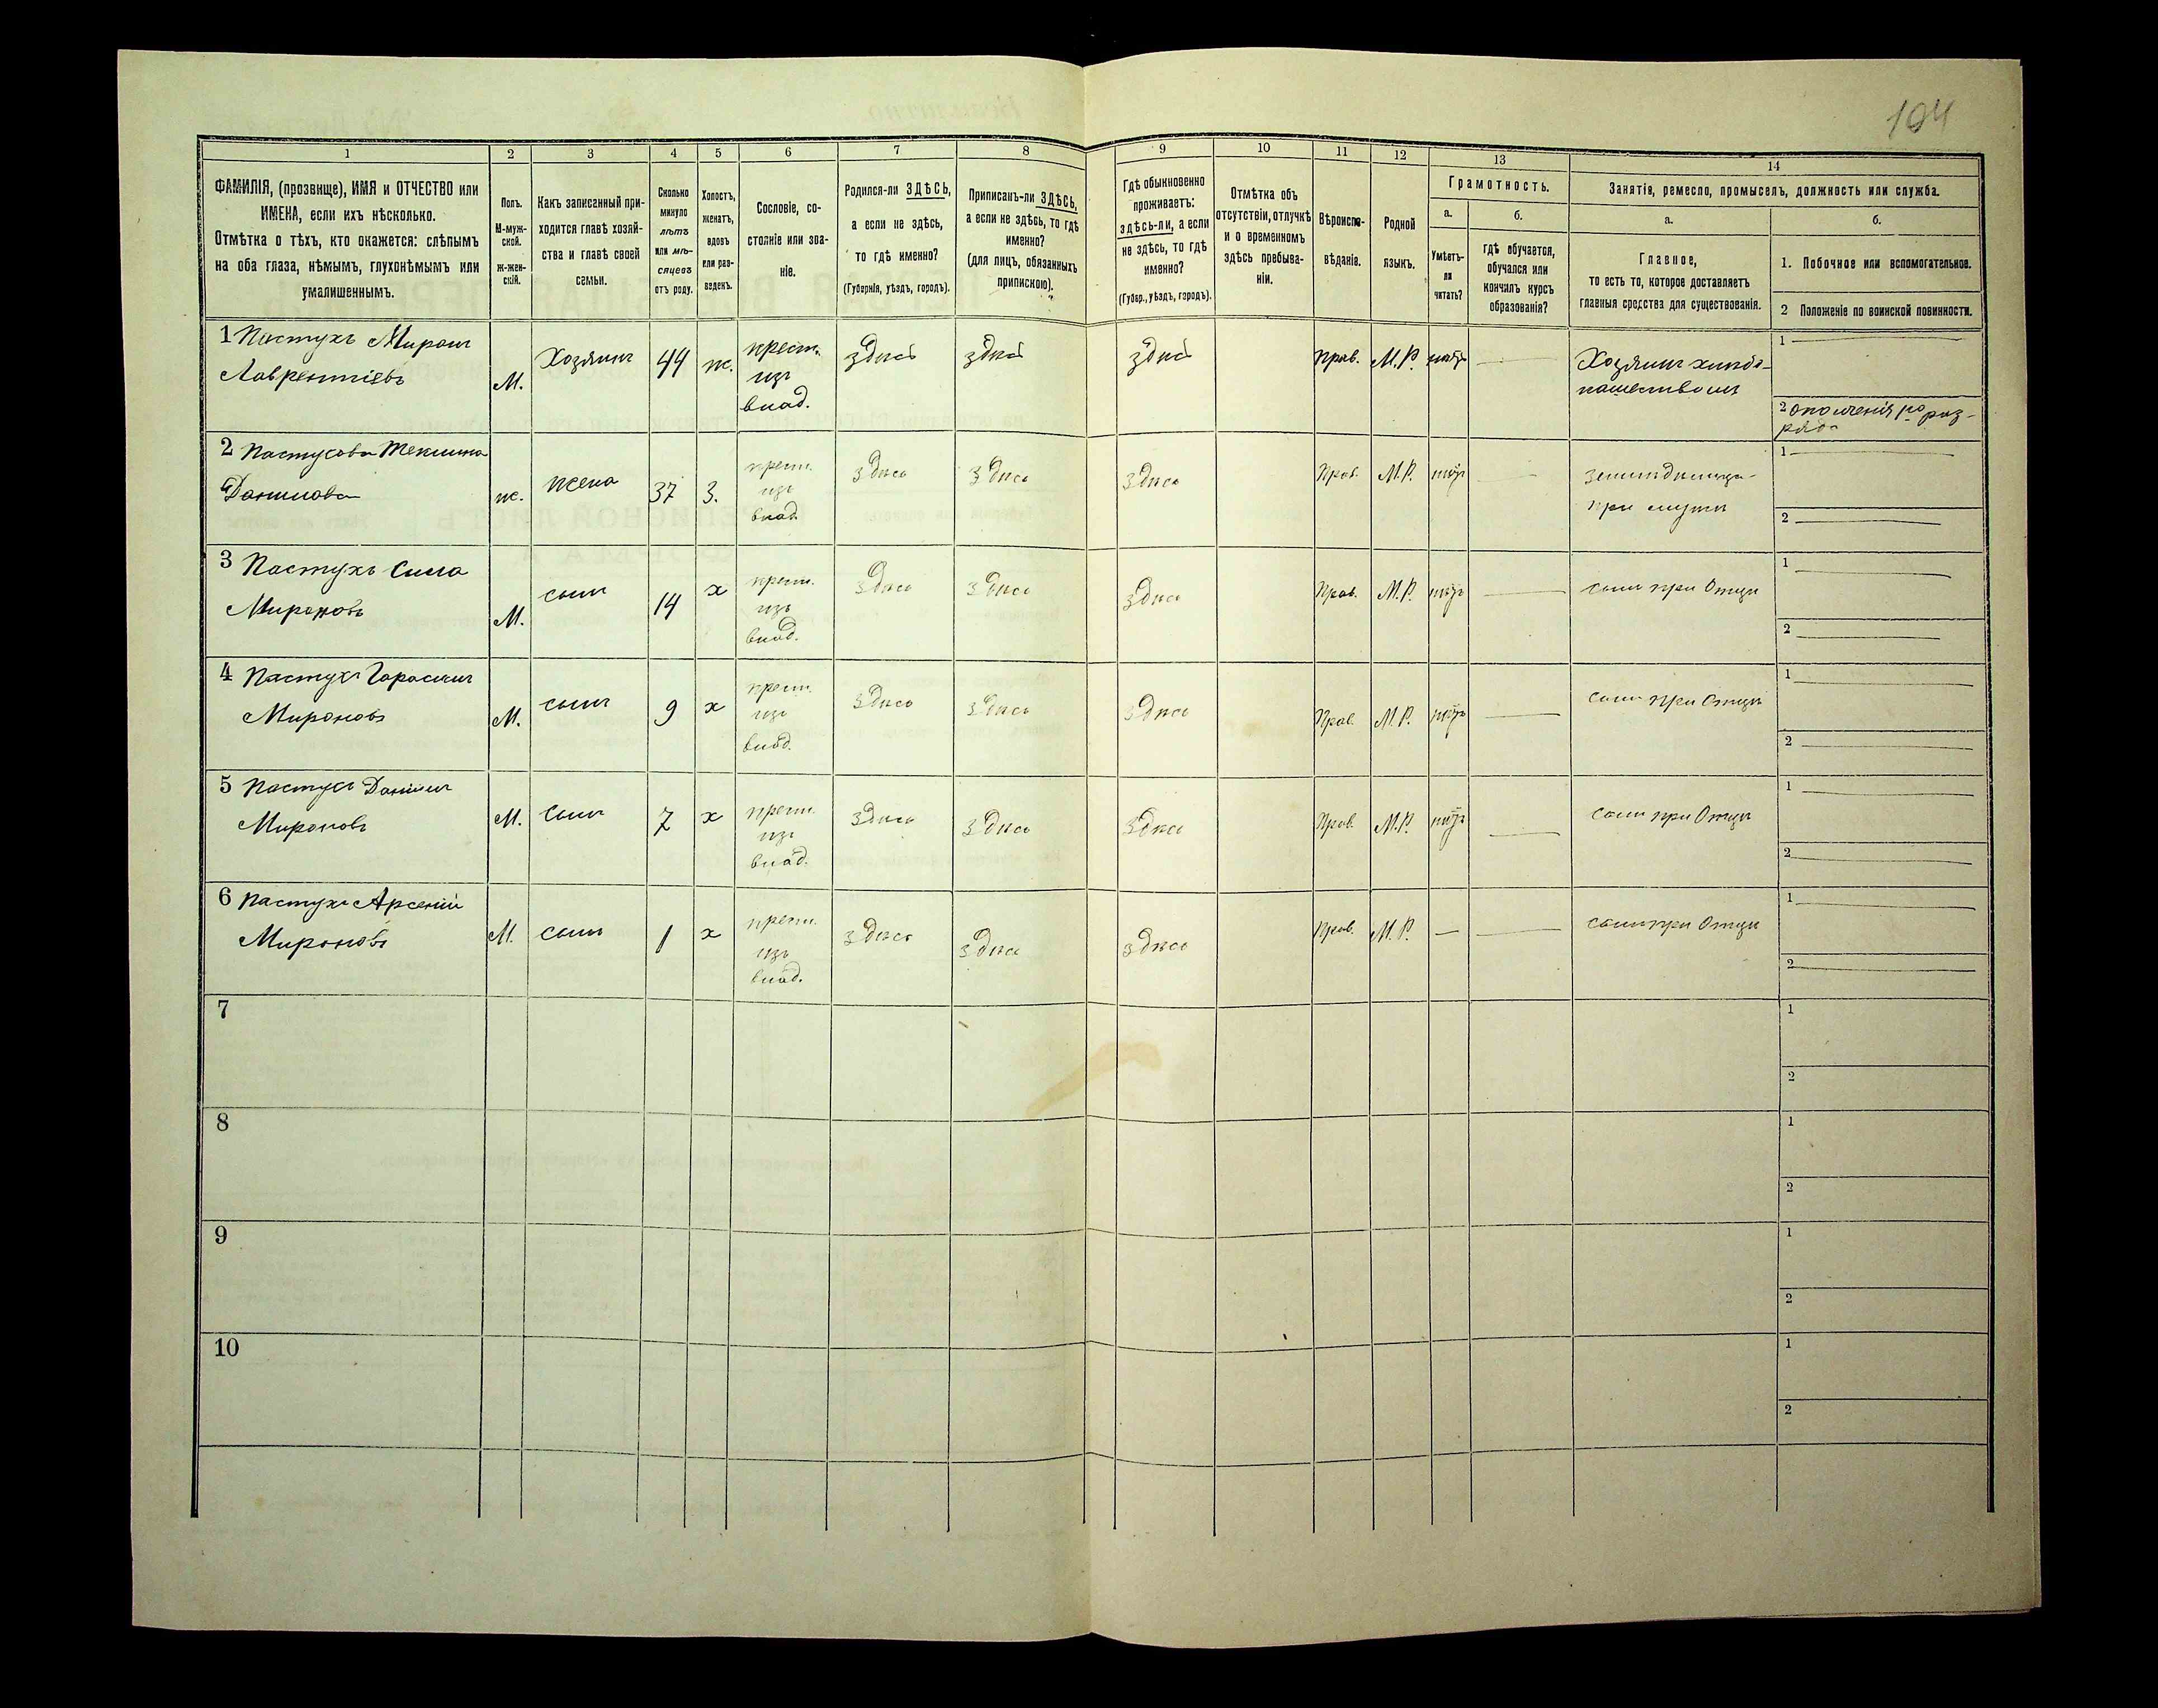 194
1
2
3
4
5
6
7
8
9
10
11
12
13
14
ФАМИЛІЯ, (прозвище), ИМЯ и ОТЧЕСТВО или
ИМЕНА, если ихъ нѣсколько.
Отмѣтка о тѣхъ, кто окажется: слѣпымъ
на оба глаза, нѣмымъ, глухонѣмымъ или
умалишеннымъ.
Полъ.
М-муж-
ской.
ж-жен-
скій.
Какъ записанный при-
ходится главѣ хозяй-
ства и главѣ своей
семьи.
Сколько
минуло
лѣтъ
или мѣ-
сяцевъ
отъ роду.
Холостъ,
женатъ,
вдовъ
или раз-
веденъ.
Сословіе, со-
стояніе или зва-
ніе.
Родился-ли ЗДѢСЬ,
а если не здѣсь,
то гдѣ именно?
(Губернія, уѣздъ, городъ).
Приписанъ-ли ЗДѢСЬ,
а если не здѣсь, то гдѣ
именно?
(для лицъ, обязанныхъ
припискою).
Гдѣ обыкновенно
проживаетъ:
здѣсь-ли, а если
не здѣсь, то гдѣ
именно?
(Губер., уѣздъ, городъ).
Отмѣтка объ
отсутствіи, отлучкѣ
и о временномъ
здѣсь пребыва-
ніи.
Вѣроиспо-
вѣданіе.
Родной
языкъ.
Грамотность.
а.
Умѣетъ-
ли
читать?
б.
гдѣ обучается,
обучался или
кончилъ курсъ
образованія?
Занятія, ремесло, промыселъ, должность или служба.
а.
Главное,
то есть то, которое доставляетъ
главныя средства для существованія.
б.
1. Побочное или вспомогательное.
2 Положеніе по воинской повинности.
1 Пастухъ Миронъ
Лаврентіевъ
М. Хозяинъ 44 ж. крест.
изъ
влад.
здѣсь здѣсь здѣсь Прав. М.Р. нѣтъ
Хозяинъ хлѣбо-
пашествомъ
1
2 ополченія 1го раз-
ряда
2 Пастухова Теклина
Данилова
ж. жена 37 з. крест.
изъ
влад.
здѣсь здѣсь здѣсь Прав. М.Р. нѣтъ
при мужѣ
1
2
3 Пастухъ Сила
Мироновъ
М. сынъ 14 х крест.
изъ
влад.
здѣсь здѣсь здѣсь Прав. М.Р. нѣтъ сынъ при Отцѣ
1
2
4 Пастухъ Гарасимъ
Мироновъ
М. сынъ 9 х крест.
изъ
влад.
здѣсь здѣсь здѣсь Прав. М.Р. нѣтъ сынъ при Отцѣ
1
2
5 Пастухъ Даніилъ
Мироновъ
М. сынъ 7 х крест.
изъ
влад.
здѣсь здѣсь здѣсь Прав. М.Р. нѣтъ сынъ при Отцѣ
1
2
6 Пастухъ Арсеній
Мироновъ
М. сынъ 1 х крест.
изъ
влад.
здѣсь здѣсь здѣсь Прав. М.Р. — сынъ при Отцѣ
1
2
7
1
2
8
1
2
9
1
2
10
1
2